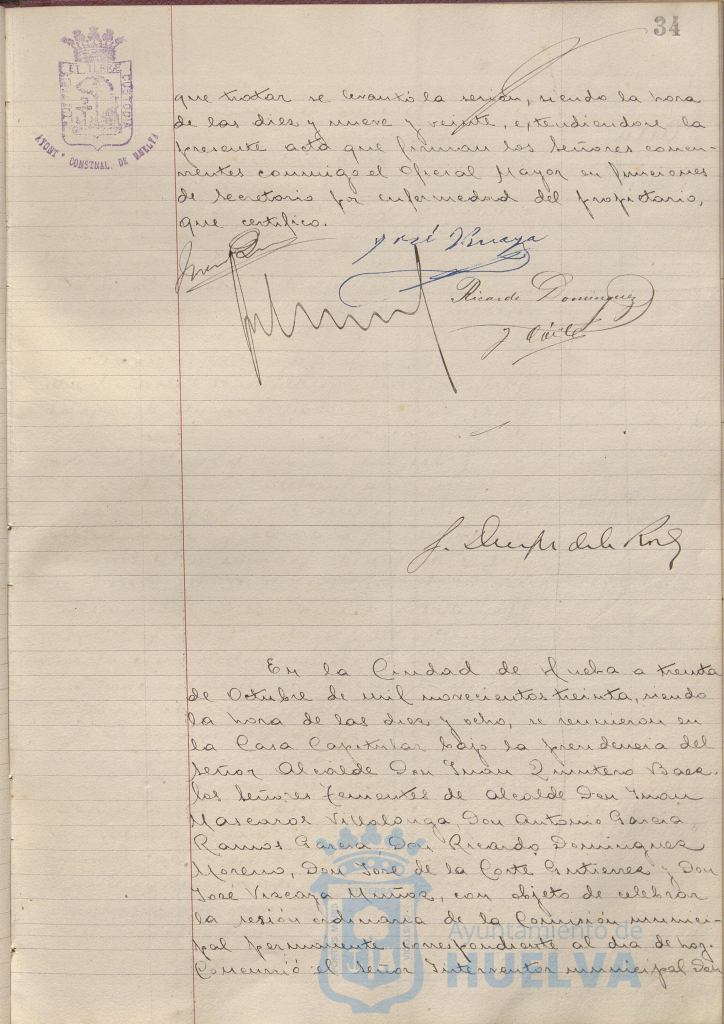 34
AYUNT. CONSTNAL. DE HUELVA
que tratar se levantó la sesión, siendo la hora
de las diez y nueve y veinte, extendiendose la
presente acta que firman los Señores concu-
rrentes conmigo el Oficial Mayor en funciones
de Secretario por enfermedad del propietario,
que certifico.
José Vizcaya
Ricardo Dominguez
En la Ciudad de Huelva a treinta
de Octubre de mil novecientos treinta, siendo
la hora de las diez y ocho, se reunieron en
la Casa Capitular bajo la presidencia del
Señor Alcalde Don Juan Quintero Baez,
los Señores Tenientes de Alcalde Don Juan
Mascaros Villalonga, Don Antonio Garcia
Ramos Garcia, Don Ricardo Dominguez
Moreno, Don José de la Corte Gutierrez y Don
José Vizcaya Muñoz, con objeto de celebrar
la sesión ordinaria de la Comisión munici-
pal permanente correspondiente al dia de hoy.
Concurrió el Señor Interventor municipal Don
Ayuntamiento de
HUELVA